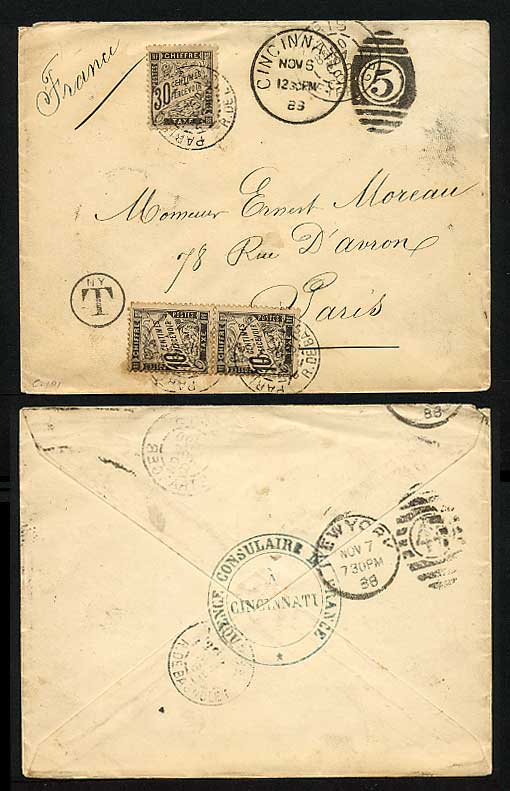 France
CHIFFRE
30
CENTIMES
A PERCEVOIR
TAXE
CINCINNATI
NOV 6
12 30 PM
88
5
Monsieur Ernest Moreau
78 Rue D'avron
Paris
NY
T
CHIFFRE
POSTES
10
CENTIMES
TAXE
CHIFFRE
POSTES
10
CENTIMES
TAXE
PARIS
PARIS
88
NEW YORK
NOV 7
7 30 PM
88
4
AGENCE CONSULAIRE DE FRANCE
À
CINCINNATI
R. DE BAGNOLET